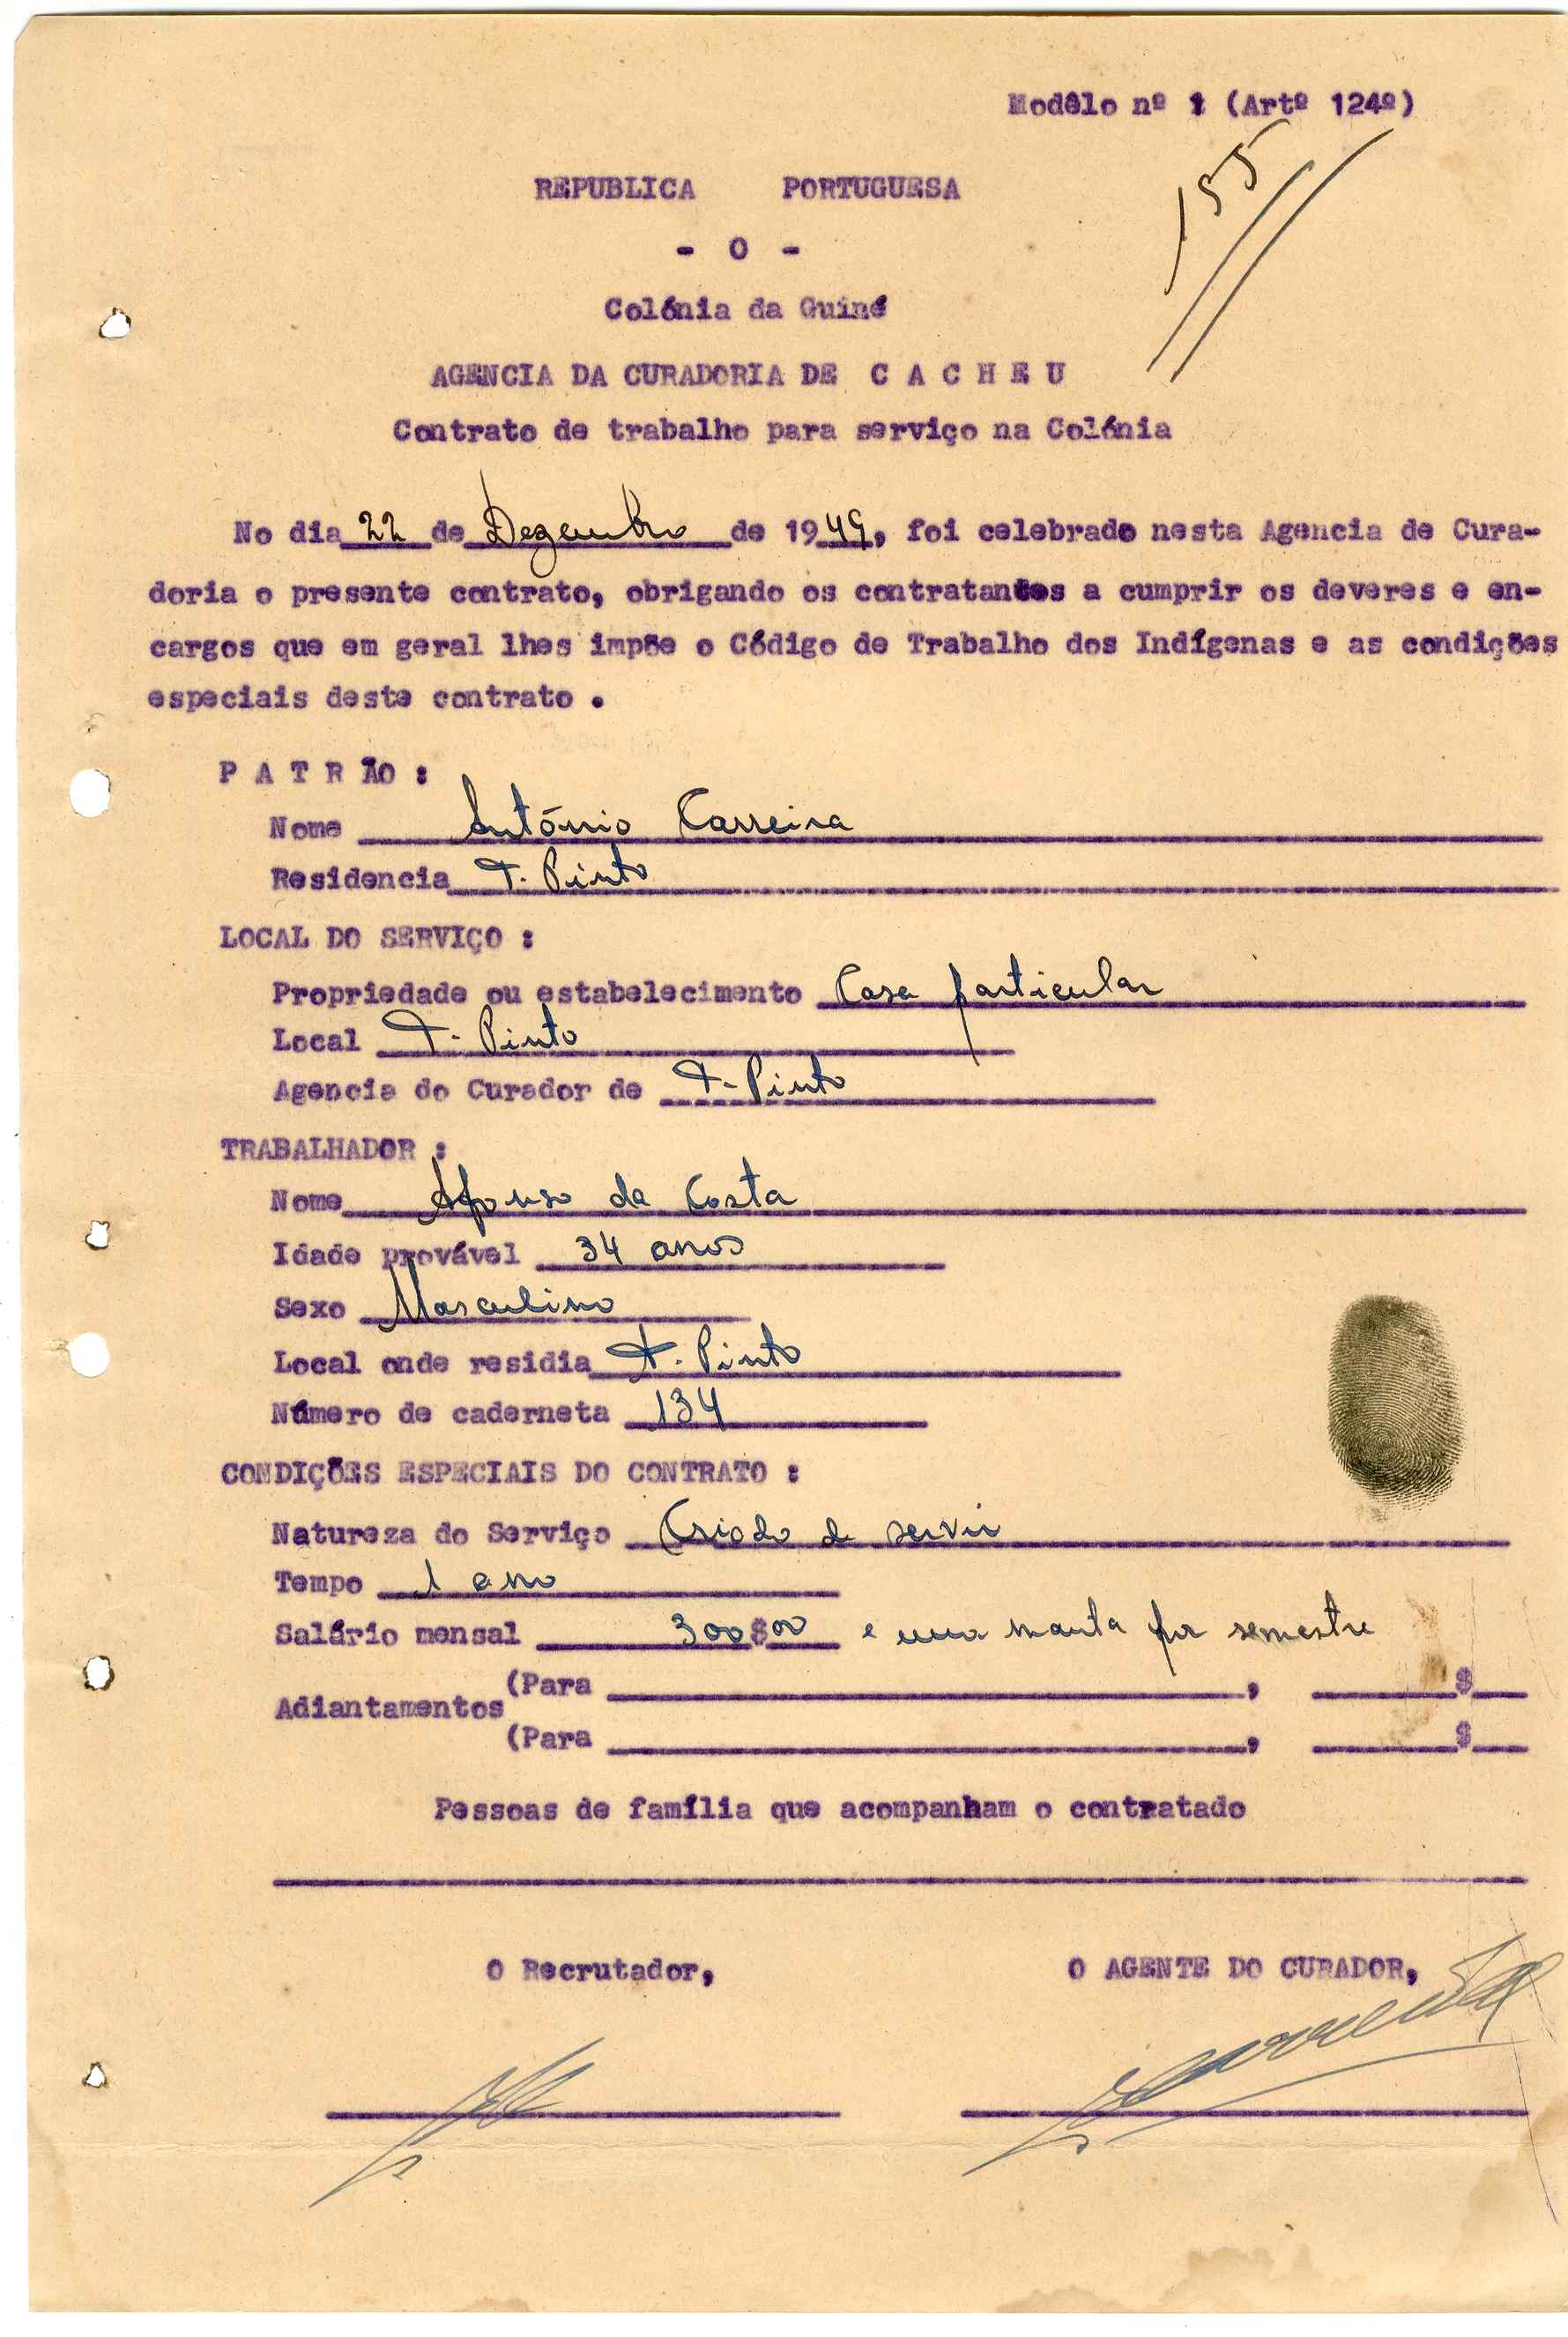 Modêlo nº 1 (Artº 124º)
155
REPUBLICA PORTUGUESA
- 0 -
Colónia da Guiné
AGENCIA DA CURADORIA DE C A C H E U
Contrato de trabalho para serviço na Colónia
No dia 22 de Dezembro de 1949, foi celebrado nesta Agencia de Cura-
doria o presente contrato, obrigando os contratantes a cumprir os deveres e en-
cargos que em geral lhes impõe o Código de Trabalho dos Indígenas e as condições
especiais deste contrato .
P A T R ÃO :
Nome António Carreira
Residencia T. Pinto
LOCAL DO SERVIÇO :
Propriedade ou estabelecimento Casa particular
Local T. Pinto
Agencia do Curador de T. Pinto
TRABALHADOR :
Nome Afonso da Costa
Idade provável 34 anos
Sexo Masculino
Local onde residia T. Pinto
Número de caderneta 134
CONDIÇÕES ESPECIAIS DO CONTRATO :
Natureza do Serviço Criado de servir
Tempo 1 ano
Salário mensal 300$00 e uma manta por semestre
(Para , $
Adiantamentos
(Para , $
Pessoas de família que acompanham o contratado
O Recrutador, O AGENTE DO CURADOR,